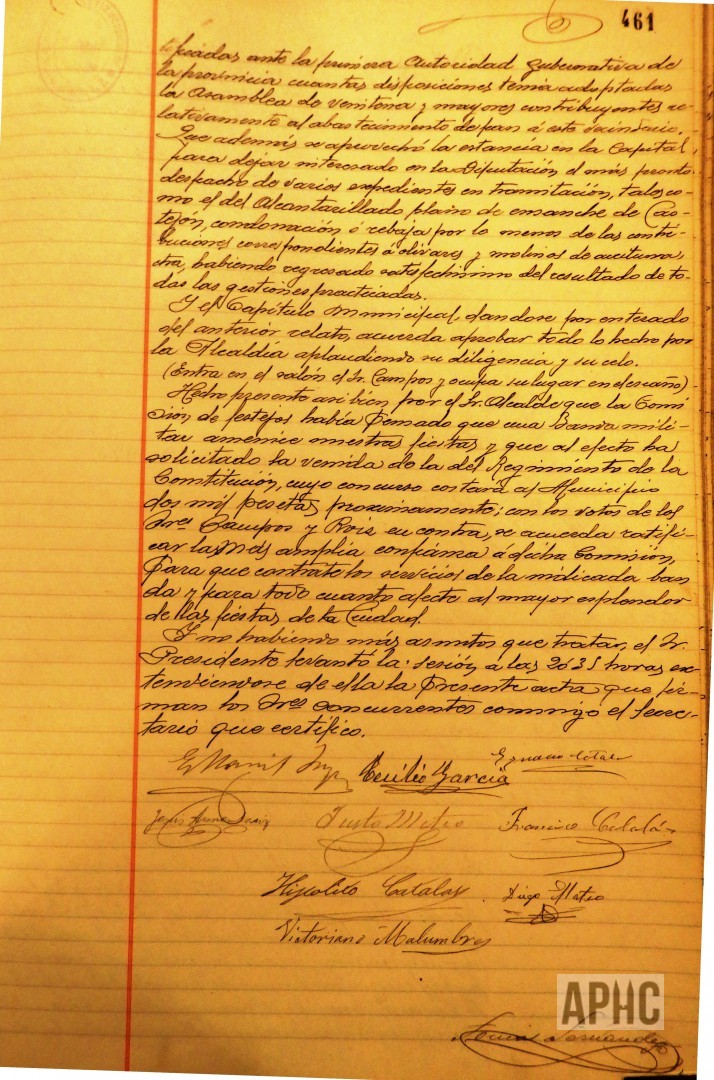 461
ante la primera Autoridad gubernativa de
la provincia cuantas disposiciones tenia adoptadas
la Asamblea de veintena y mayores contribuyentes re-
lativamente al abastecimiento de pan á este vecindario.
Que además se aprovechó la estancia en la Capital,
para dejar interesado en la Diputación el más pronto
despacho de varios expedientes en tramitación, tales co-
mo el del Alcantarillado, plano de ensanche de Cas-
tejón, condonación ó rebaja por lo menos de las contri-
buciones correspondientes á olivares y molinos de aceituna
habiendo regresado satisfechísimo del resultado de to-
das las gestiones practicadas.
Y el Capítulo Municipal, dandose por enterado
del anterior relato, acuerda aprobar todo lo hecho por
la Alcaldía aplaudiendo su diligencia y su celo.
(Entra en el salón el Sr. Campos y ocupa su lugar en descaño)
Hecho presente asi bien, por el Sr. Alcalde que la Comi
sión de festejos había pensado que una Banda mili-
tar amenice nuestras fiestas, y que al efecto ha
solicitado la venida de la del Regimiento de la
Constitución, cuyo concurso costará al Municipio
dos mil pesetas proximamente; con los votos de los
Sres Campos y Roiz en contra, se acuerda ratifi-
car la más amplia confianza á dicha Comisión,
para que contrate los servicios de la indicada ban
da y para todo cuanto afecte al mayor esplendor
de las fiestas de la Ciudad.
Y no habiendo más asuntos que tratar, el Sr.
Presidente levantó la sesión á las 20'35 horas ex-
tendiendose de ella la presente acta que fir-
man los Sres concurrentes conmigo el Secre-
tario que certifico.
Cecilio Garcia
Justo Mateo Francisco Catalán
Hipolito Catalan Diego Mateo
Victoriano Malumbres
APHC
Fernandez